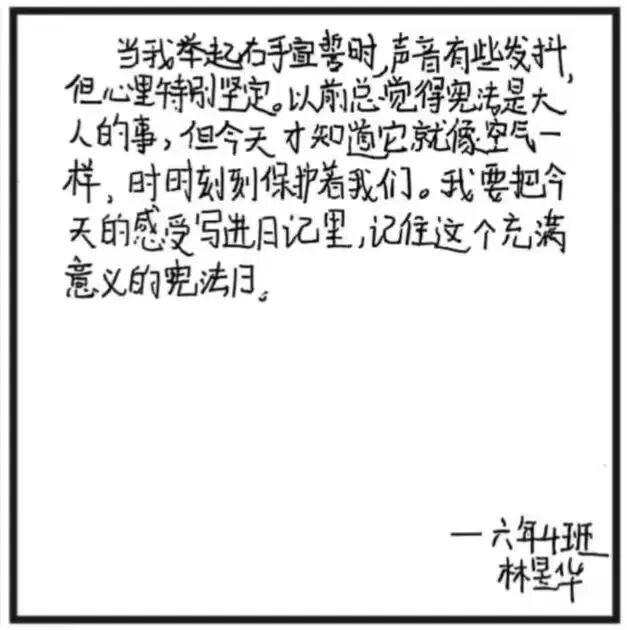 当我举起右手宣誓时,声音有些发抖,
但心里特别坚定。以前总觉得宪法是大
人的事,但今天才知道它就像空气一
样,时时刻刻保护着我们。我要把今
天的感受写进日记里,记住这个充满
意义的宪法日。
一六年4班
林昱华